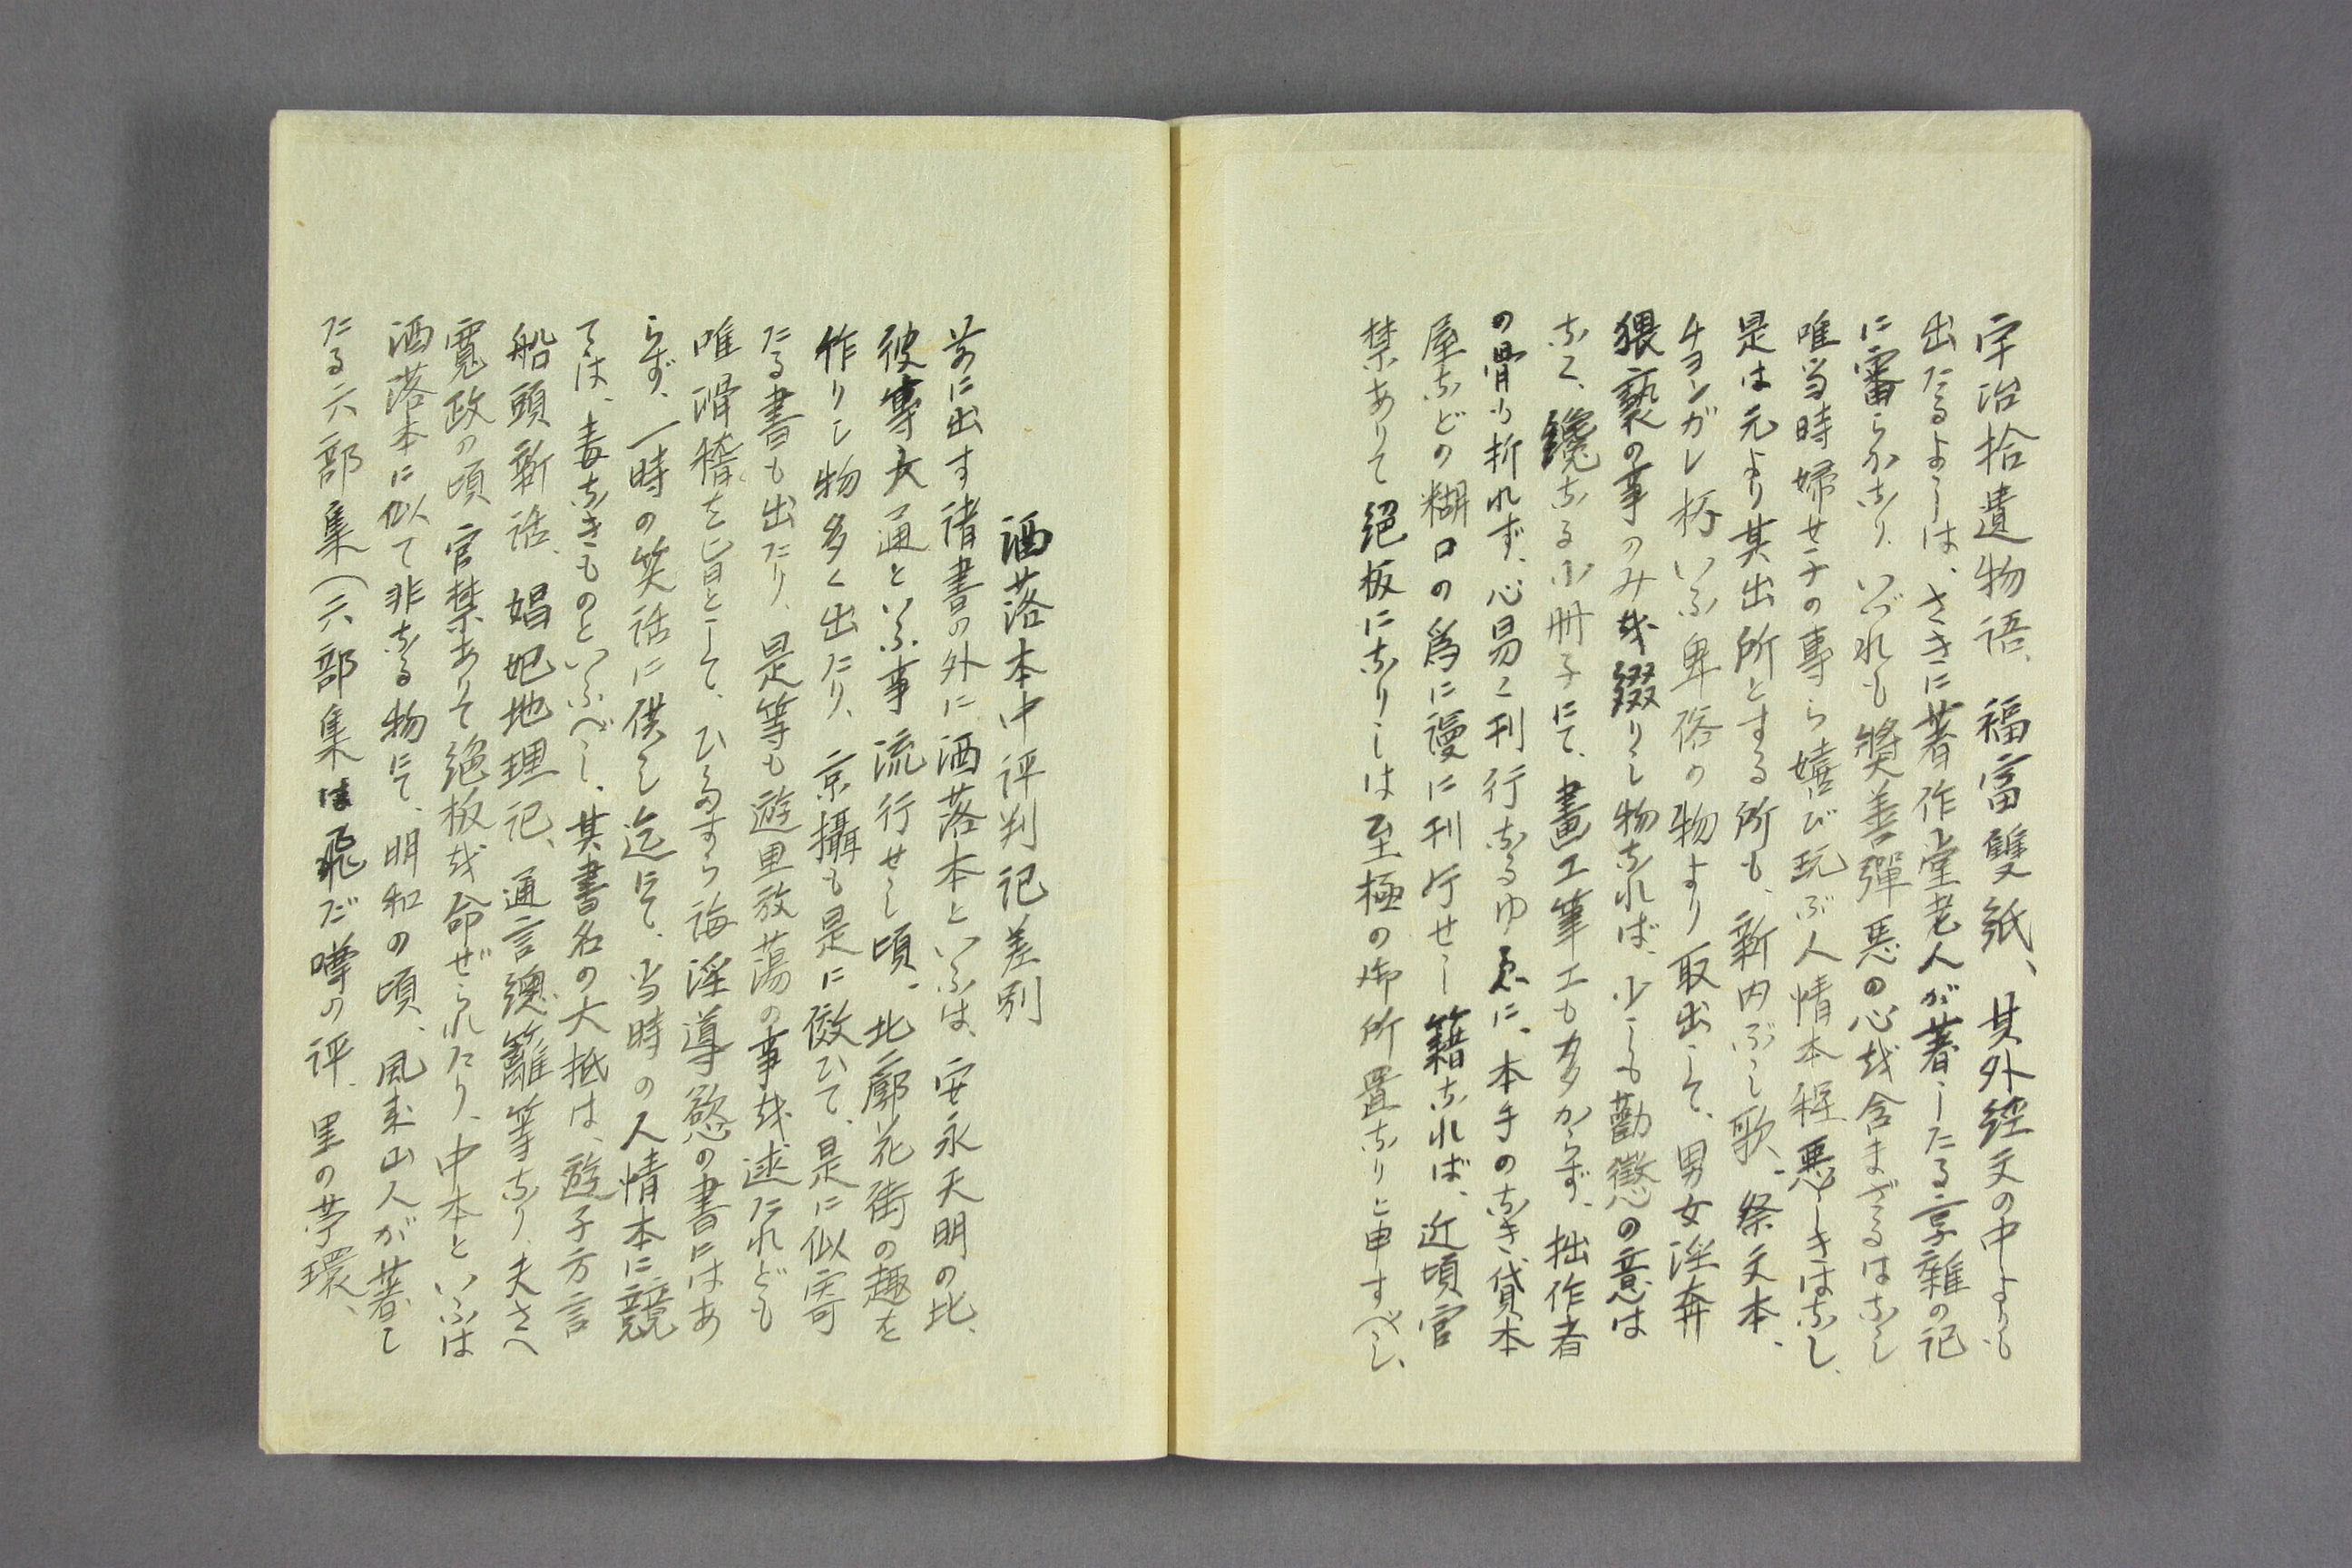 宇治拾遺物語、福富雙紙、其外経文の中よりも
出たるよしは、さきに著作堂老人が著したる享雜の記
に審らかなり、いづれも奬善彈悪の心を含まざるはなし
唯当時婦女子の專ら嬉び玩ぶ人情本程悪しきはなし、
是は元より其出所とする所も、新内ぶし歌、祭文本、
チヨンガレ抔いふ卑俗の物より取出して、男女淫奔
猥褻の事のみを綴りし物なれば、少しも勸懲の意は
なく、纔なる小冊子にて、畫工筆工も多からず、拙作者
の骨も折れず、心易く刊行なるゆゑに、本手のなき貸本
屋などの糊口の爲に謾に刊行せし籍なれば、近頃官
禁ありて絕板になりしは至極の御所置なりと申すべし、
洒落本中評判記差別
前に出す諸書の外に洒落本といふは、安永天明の比、
彼專大通といふ事流行せし頃、北廓花街の趣を
作りし物多く出たり、京攝も是に傚ひて、是に似寄
たる書も出たり、是等も遊里放蕩の事を述たれども
唯滑稽を旨として、ひたすら誨淫導慾の書にはあ
らず、一時の笑話に供し迄にて、当時の人情本に競
ては、毒なきものといふべし、其書名の大抵は、遊子方言
船頭新話、娼妃地理記、通言總籬等なり、夫さへ
寛政の頃官禁ありて絶板を命ぜられたり、中本といふは
洒落本に似て非なる物にて、明和の頃、風来山人が著し
たる六部集（六部集は飛だ噂の評、里の苧環、